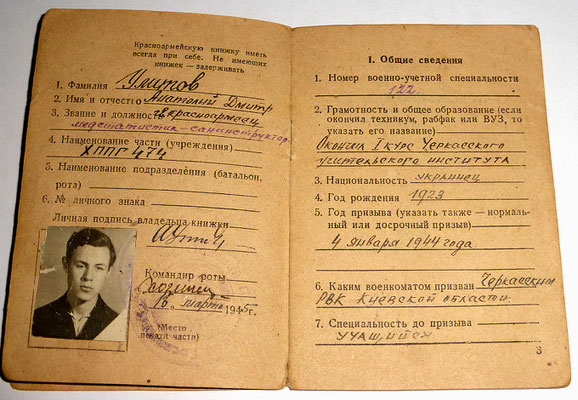 Красноармейскую книжку иметь
всегда при себе. Не имеющих
книжек — задерживать
1. Фамилия Улитов
2. Имя и отчество Анатолий Дмитр
3. Звание и должность красноармеец
медстатистик-санинструктор
4. Наименование части (учреждения)
ХППГ 474
5. Наименование подразделения (батальон,
рота)
6. № личного знака
Личная подпись владельца книжки
Командир роты
16 марта 1945г.
(Место
печати части)
I. Общие сведения
1. Номер военно-учетной специальности
122
2. Грамотность и общее образование (если
окончил техникум, рабфак или ВУЗ, то
указать его название)
Окончил I курс Черкасского
учительского института
3. Национальность украинец
4. Год рождения 1923
5. Год призыва (указать также — нормаль-
ный или досрочный призыв)
4 января 1944 года
6. Каким военкоматом призван Черкасским
РВК Киевской области
7. Специальность до призыва
учащийся
3